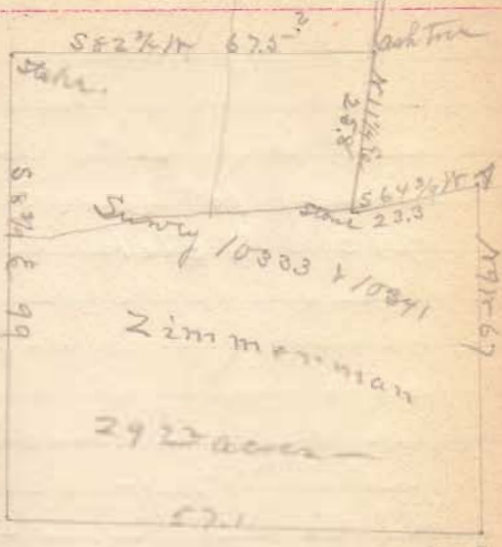 S 82 3/4 W 67.5 ?
ash Tree
Stake
N 11 1/4 E
25.8
S 64 3/4 W
Stone 23.3
S 8 3/4 E 99
Survey 10333 & 10341
Zimmerman
acres
57.1